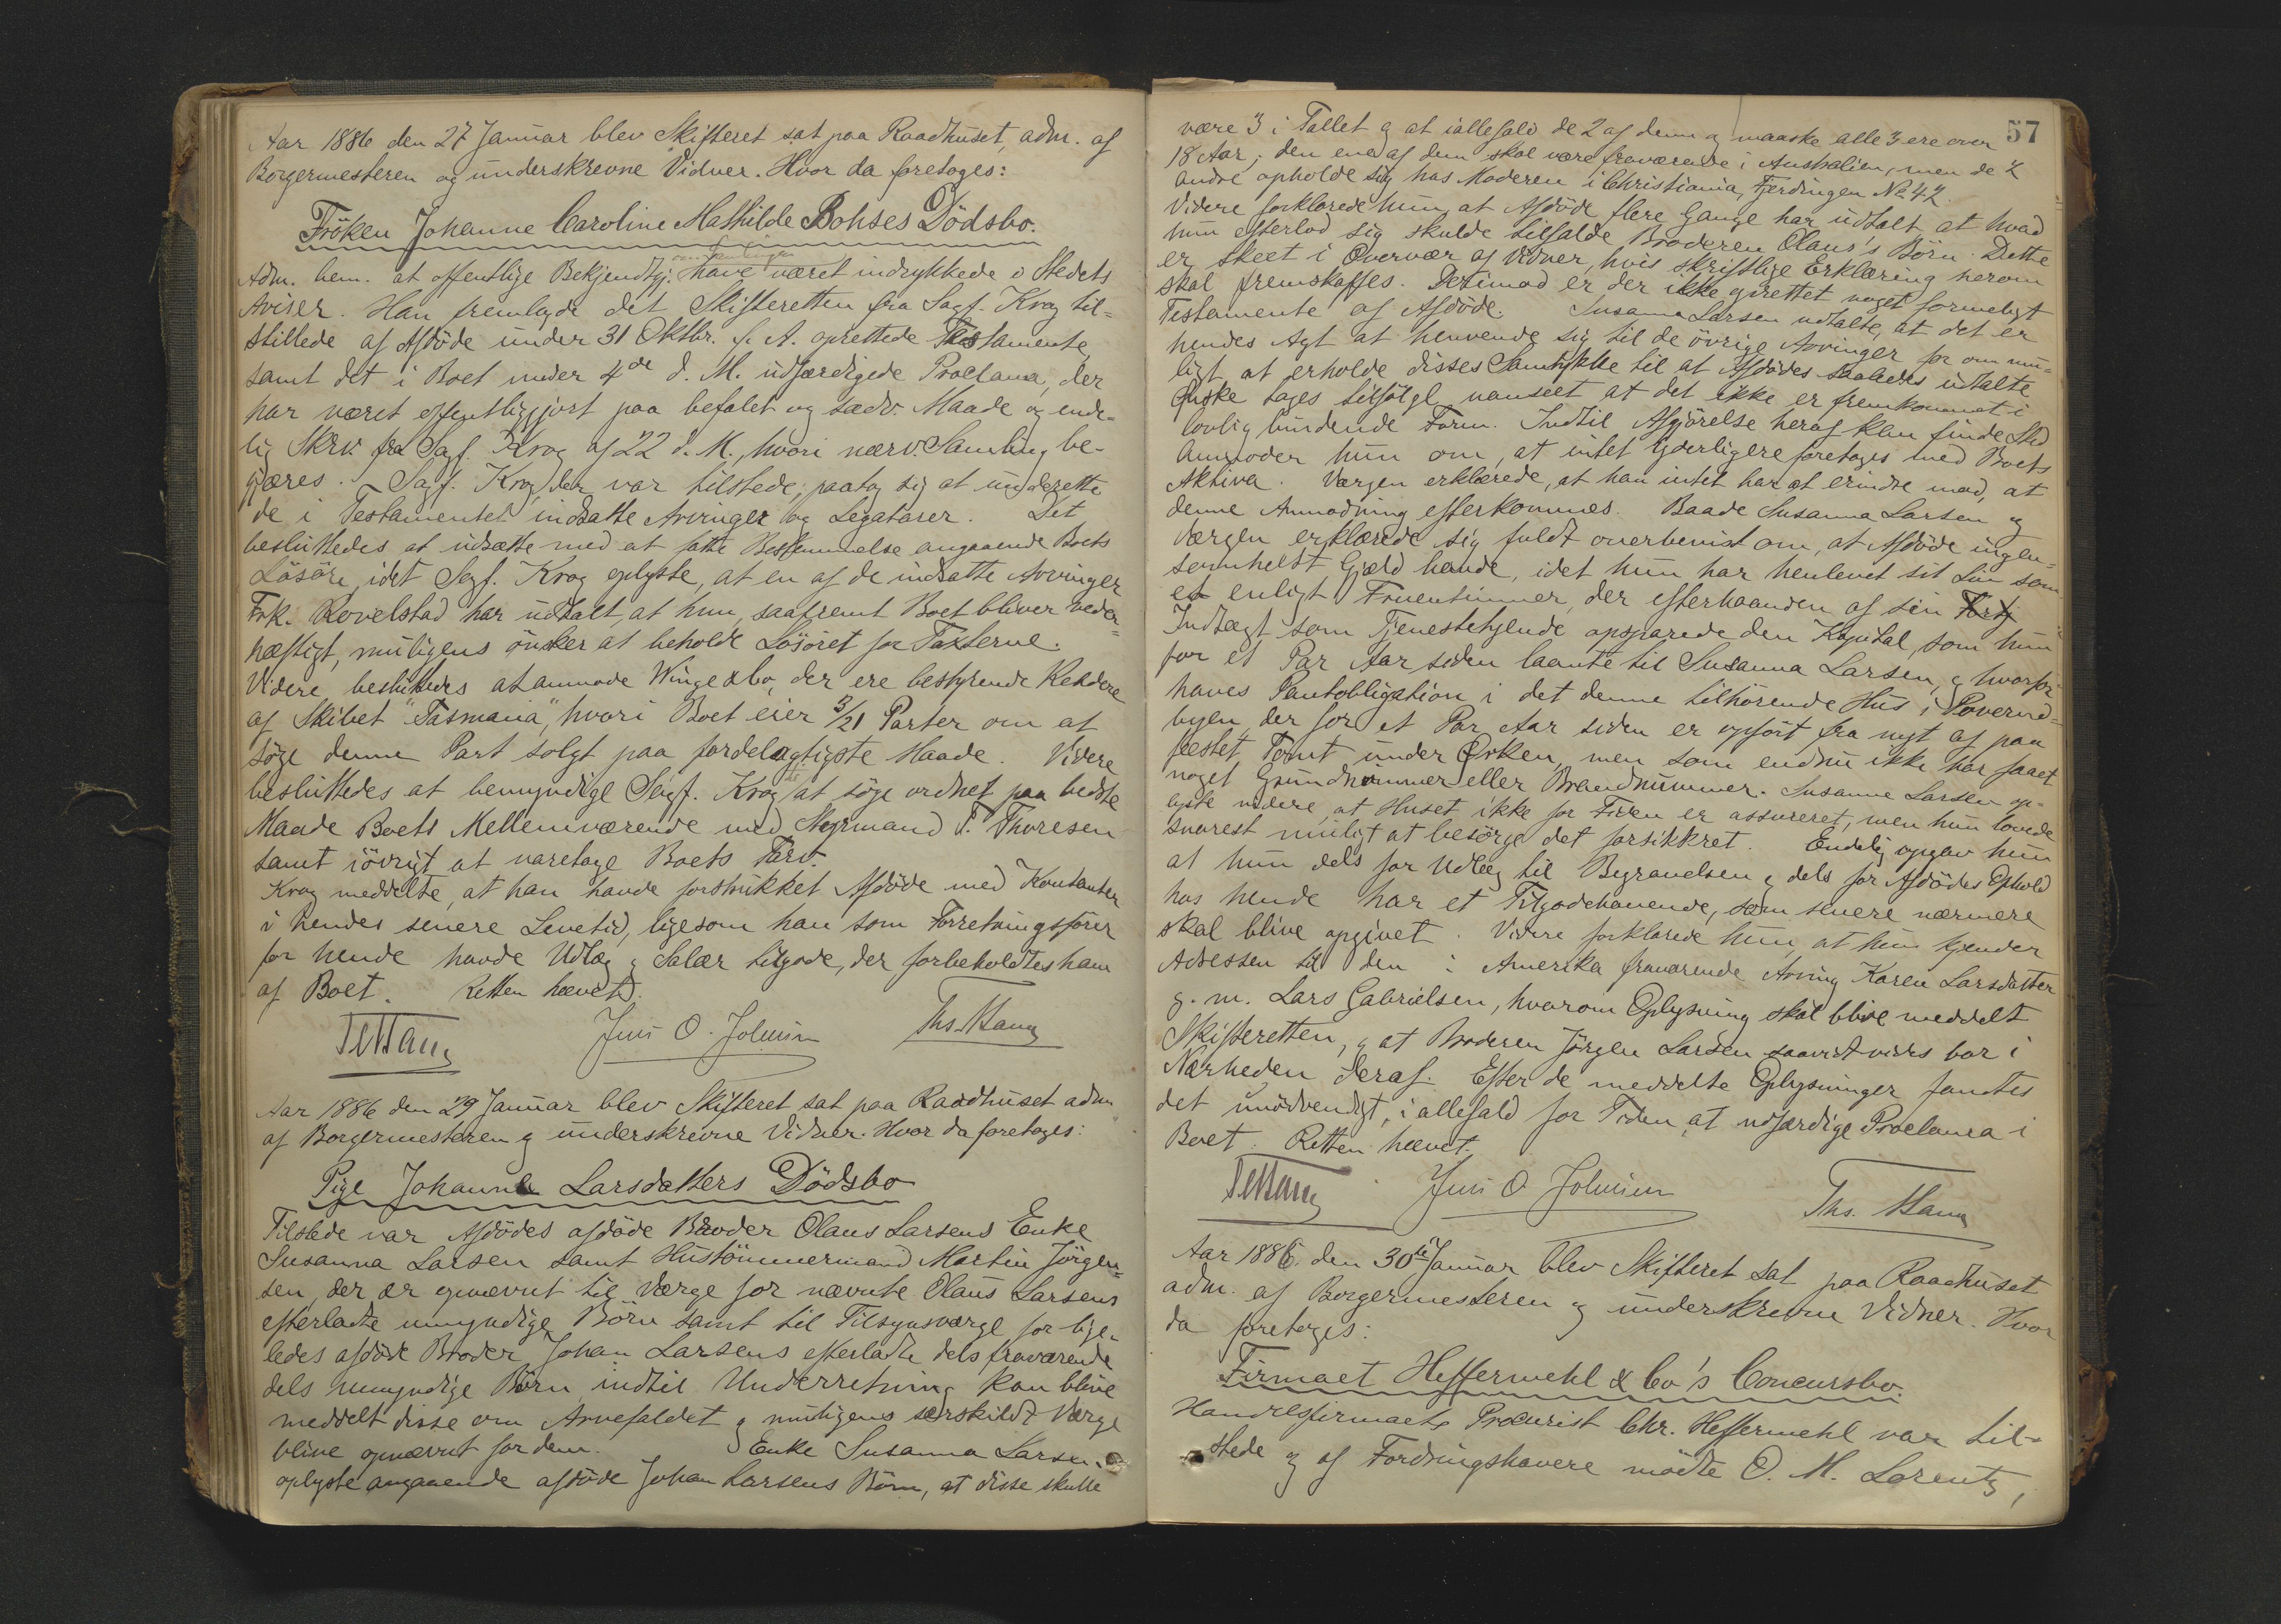 Aar 1886 den 27 Januar blev Skifteret sat paa Raadhuset, adm. af
Borgermesteren og underskrevne Vidner. Hvor da foretoges:
Fröken Johanne Caroline Mathilde Bohses Dödsbo.
Adm. bem. at offentlige Bekjendtgj. have været indrykkede i Stedets
Aviser. Han fremlagde det Skifteretten fra Sagf. Krog til=
stillede af Afdöde under 31 Oktbr. f. A. oprettede Testamente
samt det i Boet under 4de d. M. udfærdigede Proclama, der
har været offentliggjort paa befalet og sædv. Maade og ende-
lig Skrv. fra Sagf. Krog af 22 d. M., hvori nærv. Samling be-
gjæres. Sagf. Krog, der var tilstede, paatog sig at underrette
de i Testamentet indsatte Arvinger og Legatarer. Det
besluttedes at udsætte med at fatte Bestemmelse angaaende Boets
Lösöre, idet Sagf. Krog oplyste, at en af de indsatte Arvinger
Frk. Rovelstad har udtalt, at hun, saafremt Boet bliver veder=
hæftigt, muligens önsker at beholde Lösöret for Taxterne.
Videre besluttedes at anmode Winge & Co, der ere bestyrende Rehdere
af Skibet "Tasmania", hvori Boet eier 3/21 Parter om at
söge denne Part solgt paa fordelagtigste Maade. Videre
besluttedes at bemyndige Sagf. Krog til at söge ordnet paa bedste
Maade Boets Mellemværende med Styrmand P. Thoresen
samt iövrigt at varetage Boets Tarv.
Krog meddelte, at han havde forstrukket Afdöde med Kontanter
i hendes senere Levetid, ligesom han som Forretningsförer
for hende havde Udlæg & Salær tilgode, der forbeholdtes ham
af Boet. Retten hævet.
Jens O. Johnsen Ths. Hang
Aar 1886 den 29 Januar blev Skifteret sat paa Raadhuset adm
af Borgermesteren & underskrevne Vidner. Hvor da foretoges:
Pige Johanne Larsdatters Dödsbo
Tilstede var Afdödes afdöde Broder Olaus Larsens Enke
Susanna Larsen samt Hustömmermand Martin Jörgen=
sen, der er opnævnt til Værge for nævnte Olaus Larsens
efterladte umyndige Börn samt til Tilsynsværge for lige-
ledes afdöde Broder Johan Larsens efterladte dels fraværende
dels umyndige Börn indtil Underretning kan blive
meddelt disse om Arvefaldet & muligens særskildt Værge
blive opnævnt for dem. Enke Susanna Larsen
oplyste angaaende afdöde Johan Larsens Börn, at disse skulle
57
være 3 i Tallet & at iallefald de 2 af dem og maaske alle 3 ere over
18 Aar; den ene af dem skal være fraværende i Australien, men de 2
andre opholde sig hos Moderen i Christiania, Fjerdingen No 42.
Videre forklarede hun, at Afdöde flere Gange har udtalt at hvad
hun efterlod sig skulde tilfalde Broderen Olaus's Börn. Dette
er skeet i Overvær af Vidner, hvis skriftlige Erklæring herom
skal fremskaffes. Derimod er der ikke oprettet noget formeligt
Testamente af Afdöde. Susanna Larsen udtalte, at det er
hendes Agt at henvende sig til de övrige Arvinger for om mu=
ligt at erholde disses Samtykke til at Afdödes saaledes udtalte
Önske tages tilfölge uanseet at det ikke er fremkommet i
lovlig bindende Form. Indtil Afgjörelse heraf kan finde Sted
anmoder hun om, at intet yderligere foretages med Boets
Aktiva. Værgen erklærede, at han intet har at erindre mod, at
denne Anmodning efterkommes. Baade Susanna Larsen og
Værgen erklærede sig fuldt overbevist om, at Afdöde ingen=
somhelst Gjæld havde, idet hun har henlevet sit Liv som
et enligt Fruentimmer, der efterhaanden af sin
Indtægt som Tjenestetyende opsparede den Kapital, som hun
for et Par Aar siden laante til Susanna Larsen, & hvorfor
haves Pantobligation i det denne tilhörende Hus i Poverud=
byen, der for et Par Aar siden er opfört fra nyt af paa
fæstet Tomt under Orken, men som endnu ikke har faaet
noget Grundnummer eller Brandnummer. Susanne Larsen op=
lyste videre, at Huset ikke for Tiden er assureret, men hun lovede
snarest muligt at besörge det forsikkret. Endelig opgav hun
at hun dels for Udlæg til Begravelsen & dels for Afdödes Ophold
hos hende har et Tilgodehavende, som senere nærmere
skal blive opgivet. Videre forklarede hun, at hun kjender
Adressen til den i Amerika fraværende Arving Karen Larsdatter
g. m. Lars Gabrielsen, hvorom Oplysning skal blive meddelt
Skifteretten, & at Broderen Jörgen Larsen saavidt vides bor i
Nærheden deraf. Efter de meddelte Oplysninger fandtes
det unödvendigt, i allefald for Tiden, at udfærdige Proclama i
Boet. Retten hævet.
Jens O Johnsen Ths. Hang
Aar 1886 den 30te Januar blev Skifteret sat paa Raadhuset
adm. af Borgermesteren & underskrevne Vidner. Hvor
da foretoges:
Firmaet Heffermehl & Co's Concursbo.
Handelsfirmaets Procurist Chr. Heffermehl var til=
stede & af Fordringshavere mödte O. M. Lorentz,